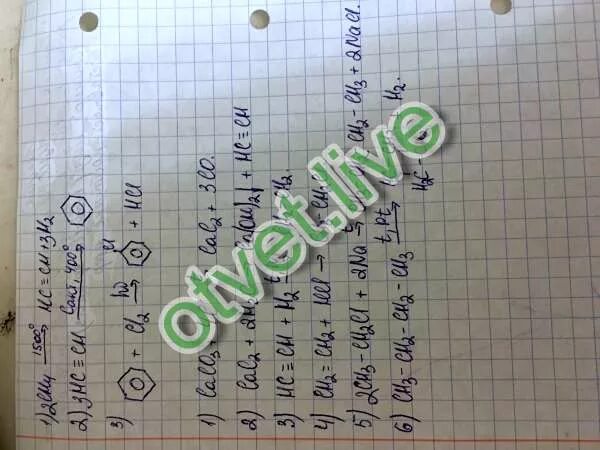 1) 2CH₄ 1500° → HC≡CH+3H₂
2) 3HC≡CH Cакт, 400° →
3) + Cl₂ hν → Cl + HCl
1) CaCO₃ CaC₂ + 3CO.
2) CaC₂ + 2H Ca(OH)₂ + HC≡CH
3) HC≡CH + H₂
4) CH₂=CH₂ + HCl →
5) 2CH₃-CH₂Cl + 2Na → CH₂-CH₃ + 2NaCl.
6) CH₃-CH₂-CH₂-CH₃ t, pt → H₂.
H₂C-
otvet.live